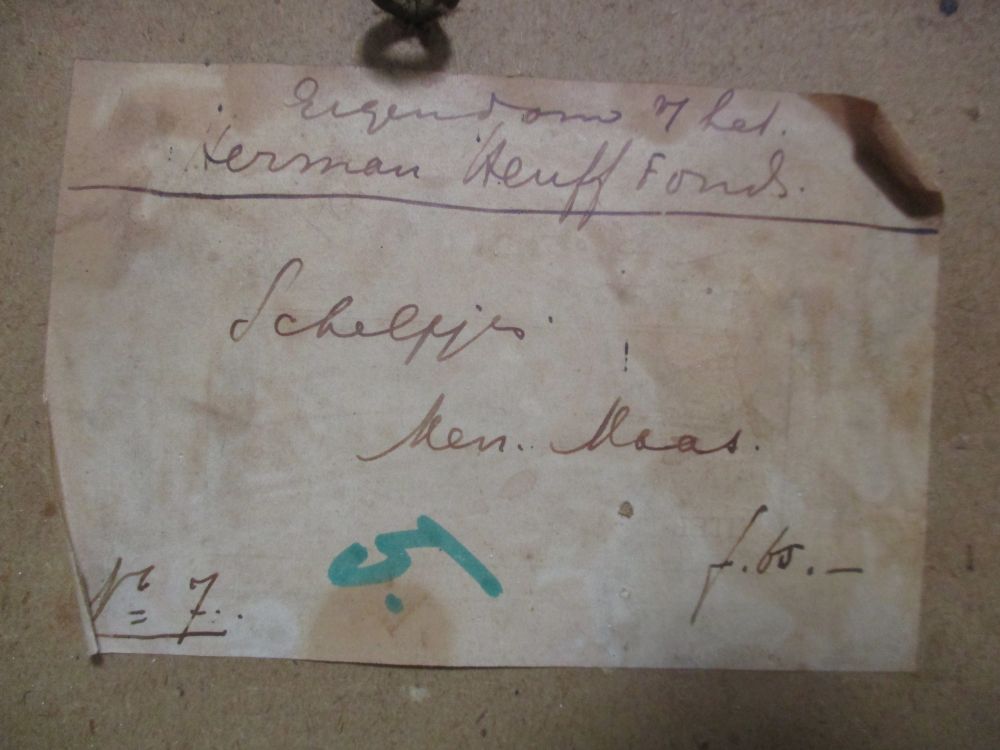 Eigendom v/ het.
Herman Heuff Fonds.
Schelpjes.
Men. Maas.
No 7.
f. 60.—